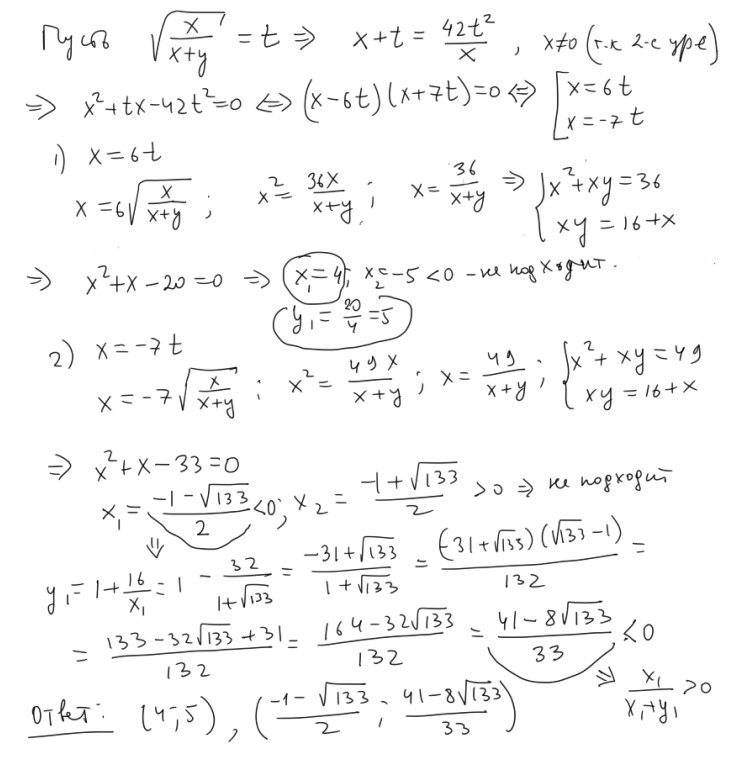 Пусть √(x/(x+y)) = t ⇒ x+t = 42t²/x , x≠0 (т.к 2-е уре)
⇒ x²+tx−42t²=0 ⇔ (x−6t)(x+7t)=0 ⇔ [x=6t x=−7t
1) x=6t
x=6√(x/(x+y)) ; x²=36x/(x+y) ; x=36/(x+y) ⇒ {x²+xy=36 xy=16+x
⇒ x²+x−20=0 ⇒ x₁=4; x₂=−5<0 −не подходит.
y₁=20/4=5
2) x=−7t
x=−7√(x/(x+y)) ; x²=49x/(x+y) ; x=49/(x+y) ; {x²+xy=49 xy=16+x
⇒ x²+x−33=0
x₁=(−1−√133)/2<0; x₂=(−1+√133)/2>0 ⇒ не подходит
⇓
y₁=1+16/x₁=1−32/(1+√133)=(−31+√133)/(1+√133)=(−31+√133)(√133−1)/132=
=(133−32√133+31)/132=(164−32√133)/132=(41−8√133)/33<0
⇒ x₁/(x₁+y₁)>0
Ответ: (4;5), ((−1−√133)/2 ; (41−8√133)/33)